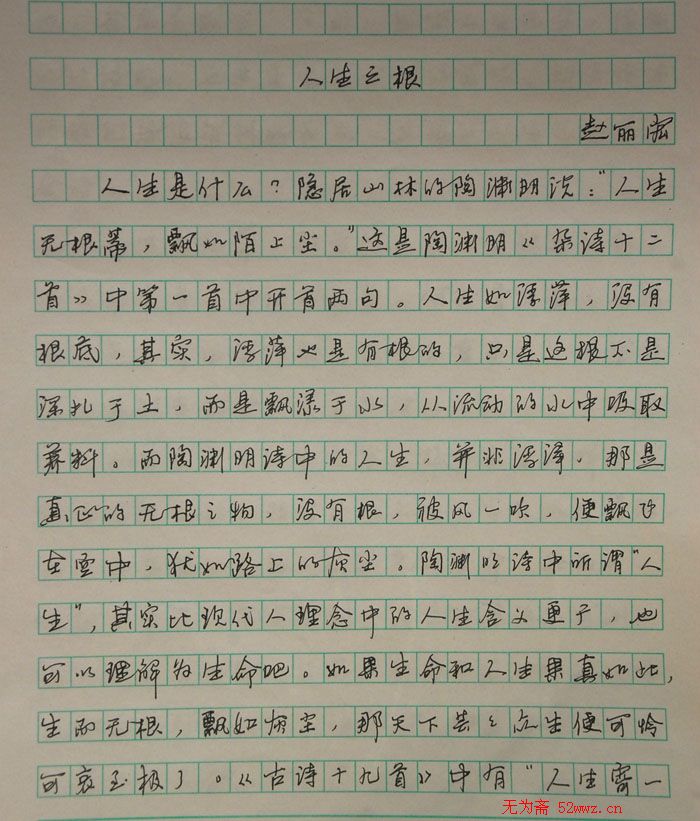 人生之根
赵丽宏
人生是什么？隐居山林的陶渊明说：“人生
无根蒂，飘如陌上尘。”这是陶渊明《杂诗十二
首》中第一首中开首两句。人生如浮萍，没有
根底，其实，浮萍也是有根的，只是这根不是
深扎于土，而是飘漾于水，从流动的水中吸取
养料。而陶渊明诗中的人生，并非浮萍，那是
真正的无根之物，没有根，被风一吹，便飘飞
在空中，犹如路上的灰尘。陶渊明诗中所谓“人
生”，其实比现代人理念中的人生含义更广，也
可以理解为生命吧。如果生命和人生果真如此，
生而无根，飘如烟尘，那天下芸芸众生便可怜
可哀至极了。《古诗十九首》中有“人生寄一
无为斋 52wwz.cn